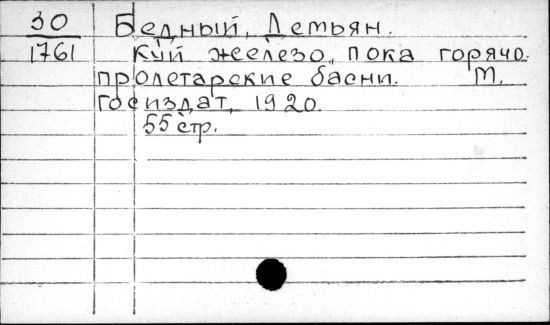 30 Бедный, Демьян.
1761 Куй железо, пока горячо.
пролетарские басни. М.
Госиздат, 1920.
55 стр.